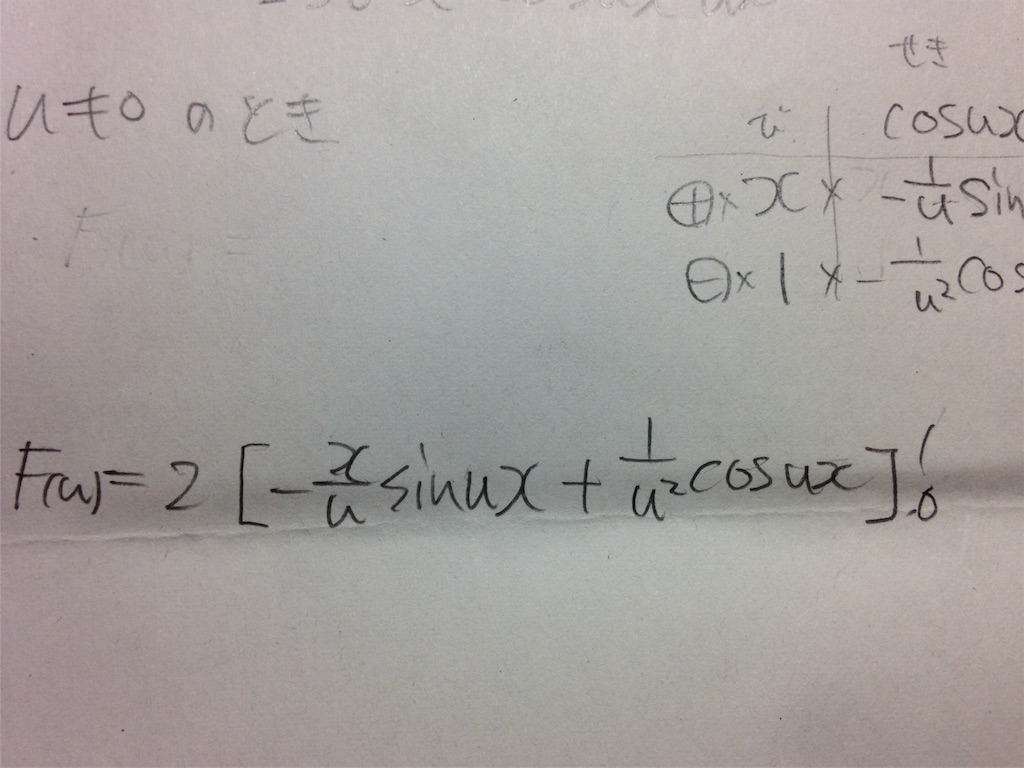 u≠0 のとき
せき
び cosux
⊕× x × -1/u sin
⊖× 1 × -1/u² cos
F(u) =
F(u) = 2 [ -x/u sinux + 1/u² cosux ]₀¹